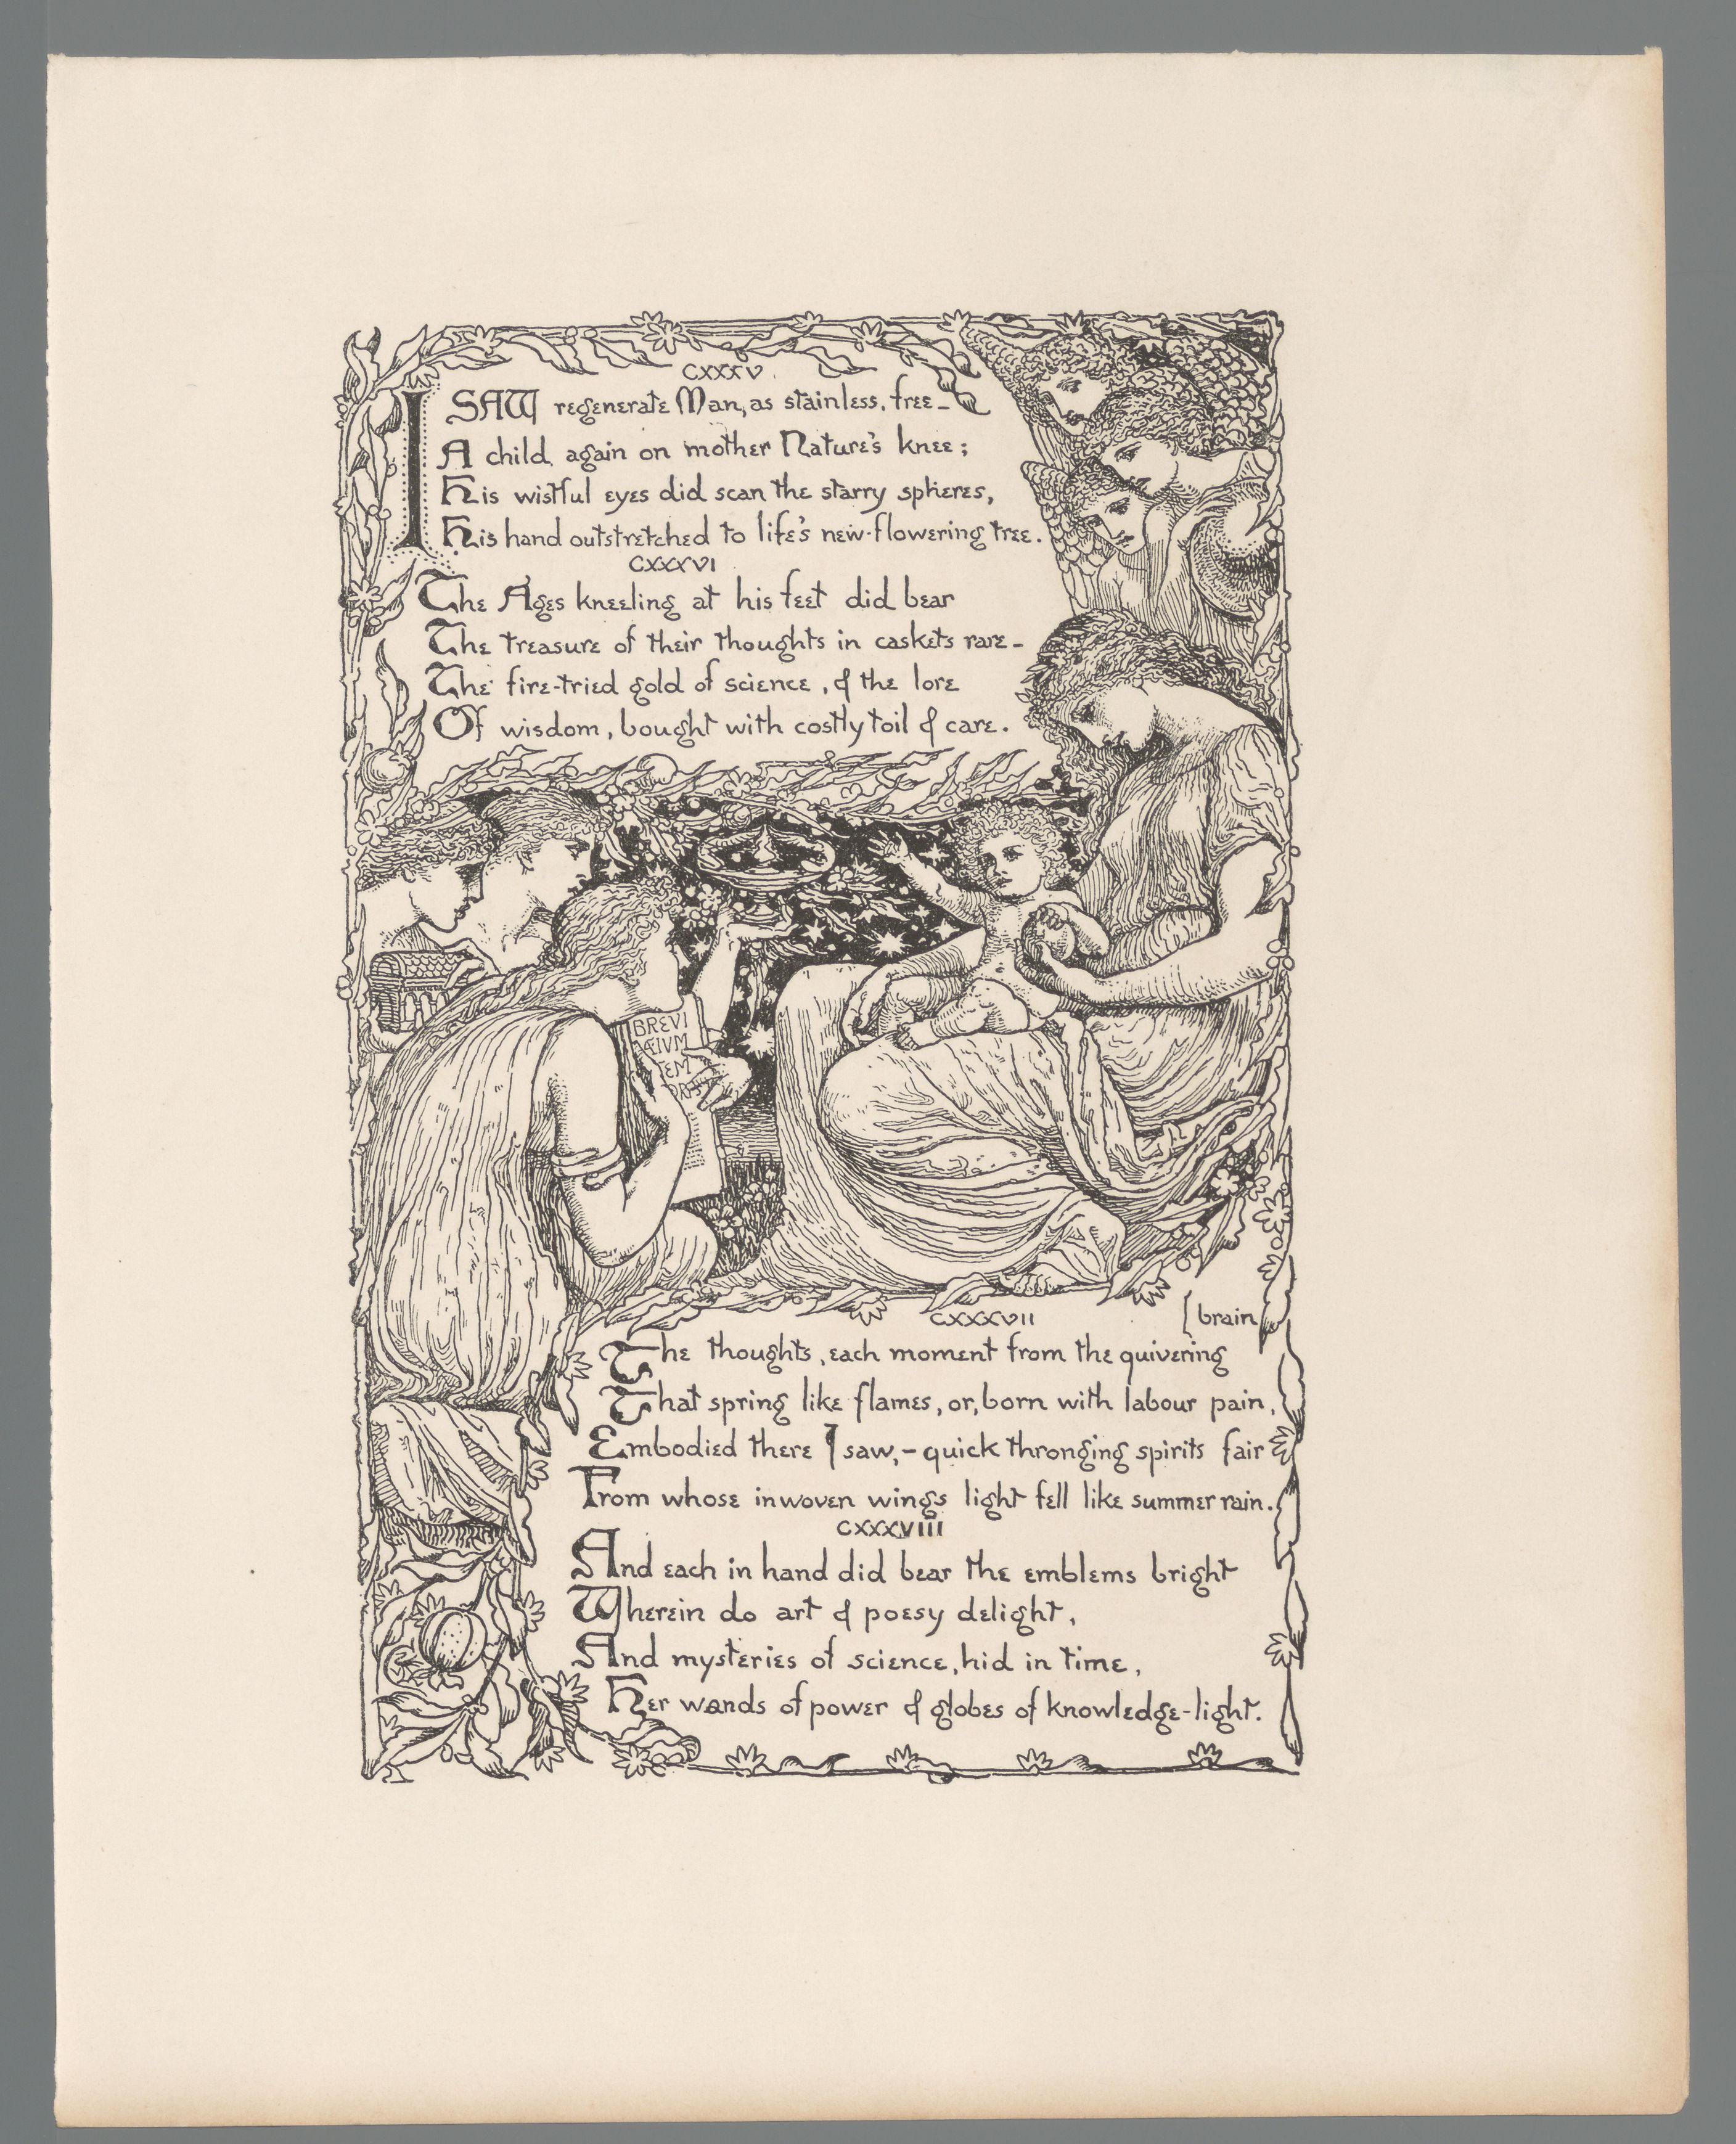 CXXXV.
I SAW regenerate Man, as stainless, free—
A child again on mother Nature's knee;
His wistful eyes did scan the starry spheres,
His hand outstretched to life's new-flowering tree.
CXXXVI
The Ages kneeling at his feet did bear
The treasure of their thoughts in caskets rare—
The fire-tried gold of science, & the lore
Of wisdom, bought with costly toil & care.
BREVI
CXXXVII
[brain
The thoughts, each moment from the quivering
That spring like flames, or, born with labour pain,
Embodied there I saw,— quick thronging spirits fair
From whose inwoven wings light fell like summer rain.
CXXXVIII
And each in hand did bear the emblems bright
Wherein do art & poesy delight,
And mysteries of science, hid in time,
Her wands of power & globes of knowledge-light.